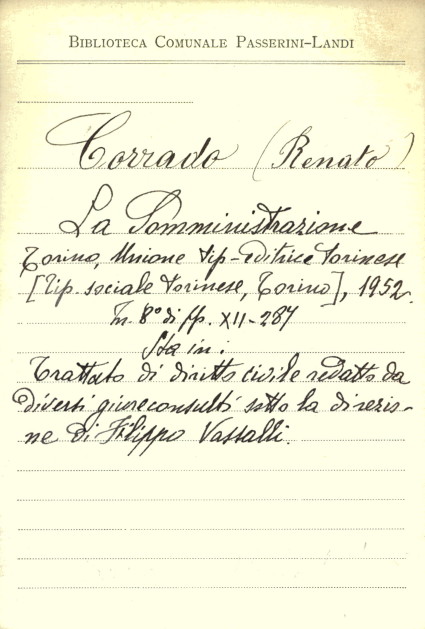 BIBLIOTECA COMUNALE PASSERINI-LANDI
Corrado (Renato)
La Somministrazione
Torino, Unione tip-editrice torinese
[Tip. sociale torinese, Torino], 1952.
In 8° di pp. XII-287
Sta in:
Trattato di diritto civile redatto da
diversi giureconsulti sotto la direzio-
ne di Filippo Vassalli.